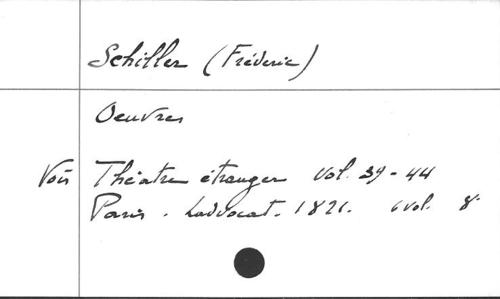 Schiller (Fréderic)
Oeuvres
Voir Théatre étranger Vol. 39-44
Paris. Ladvocat. 1821. 6 vol. 8°